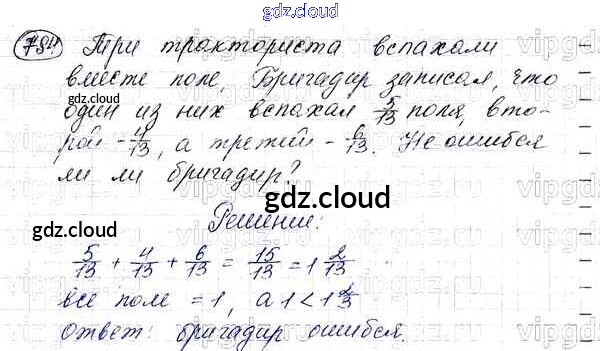 gdz.cloud
784 Три тракториста вспахали
вместе поле. Бригадир записал, что
один из них вспахал 5/13 поля, вто-
рой - 4/13, а третий - 6/13. Не ошибся
ли ли бригадир?
gdz.cloud
gdz.cloud
gdz.cloud
Решение:
5/13 + 4/13 + 6/13 = 15/13 = 1 2/13
все поле = 1, а 1 < 1 2/13
Ответ: бригадир ошибся.
gdz.cloud
gdz.cloud